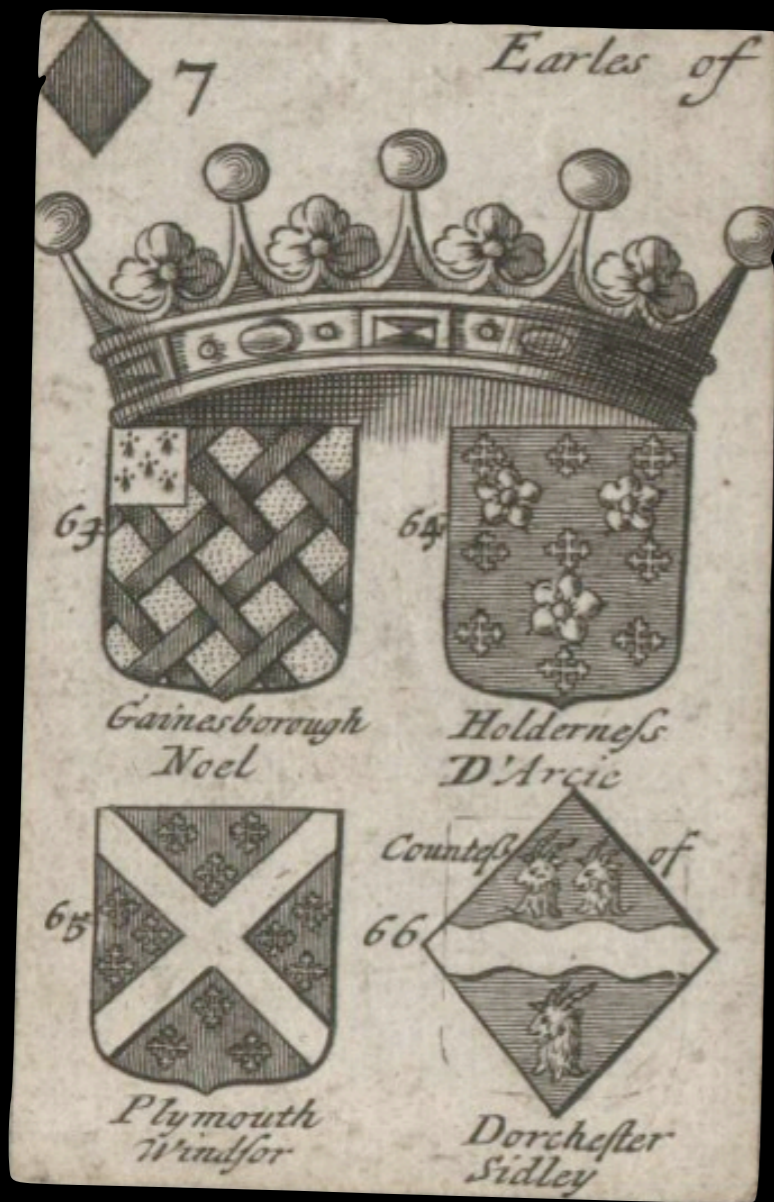 7 Earles of
63
64
Gainesborough
Noel
Holderneſs
D'Arcie
Counteß of
65
66
Plymouth
Windſor
Dorcheſter
Sidley